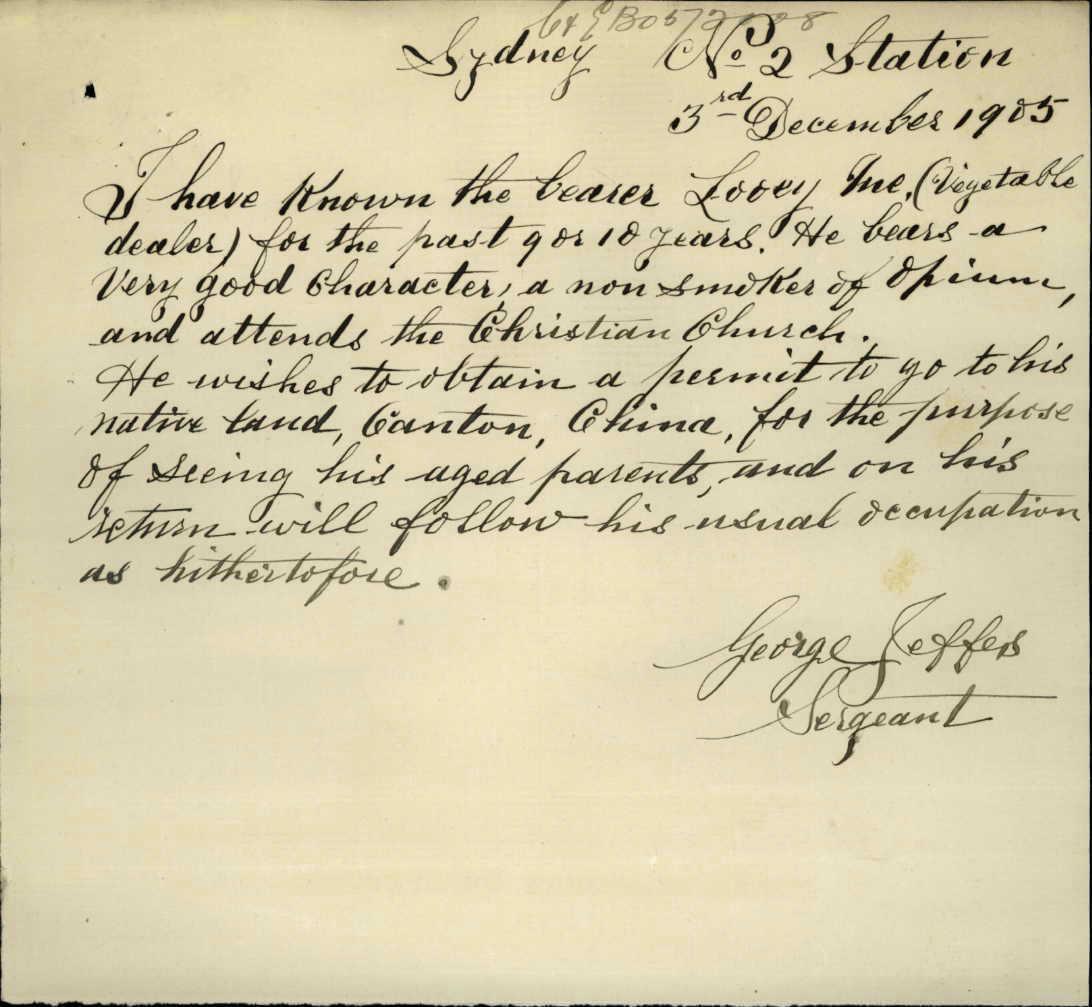 Sydney No. 2 Station
3rd December 1905
I have Known the bearer Looey Me, (Vegetable
dealer) for the past 9 or 10 years. He bears a
Very good Character, a non smoker of Opium,
and attends the Christian Church.
He wishes to obtain a permit to go to his
native land, Canton, China, for the purpose
of seeing his aged parents, and on his
return will follow his usual occupation
as hithertofore.
George Jeffers
Sergeant